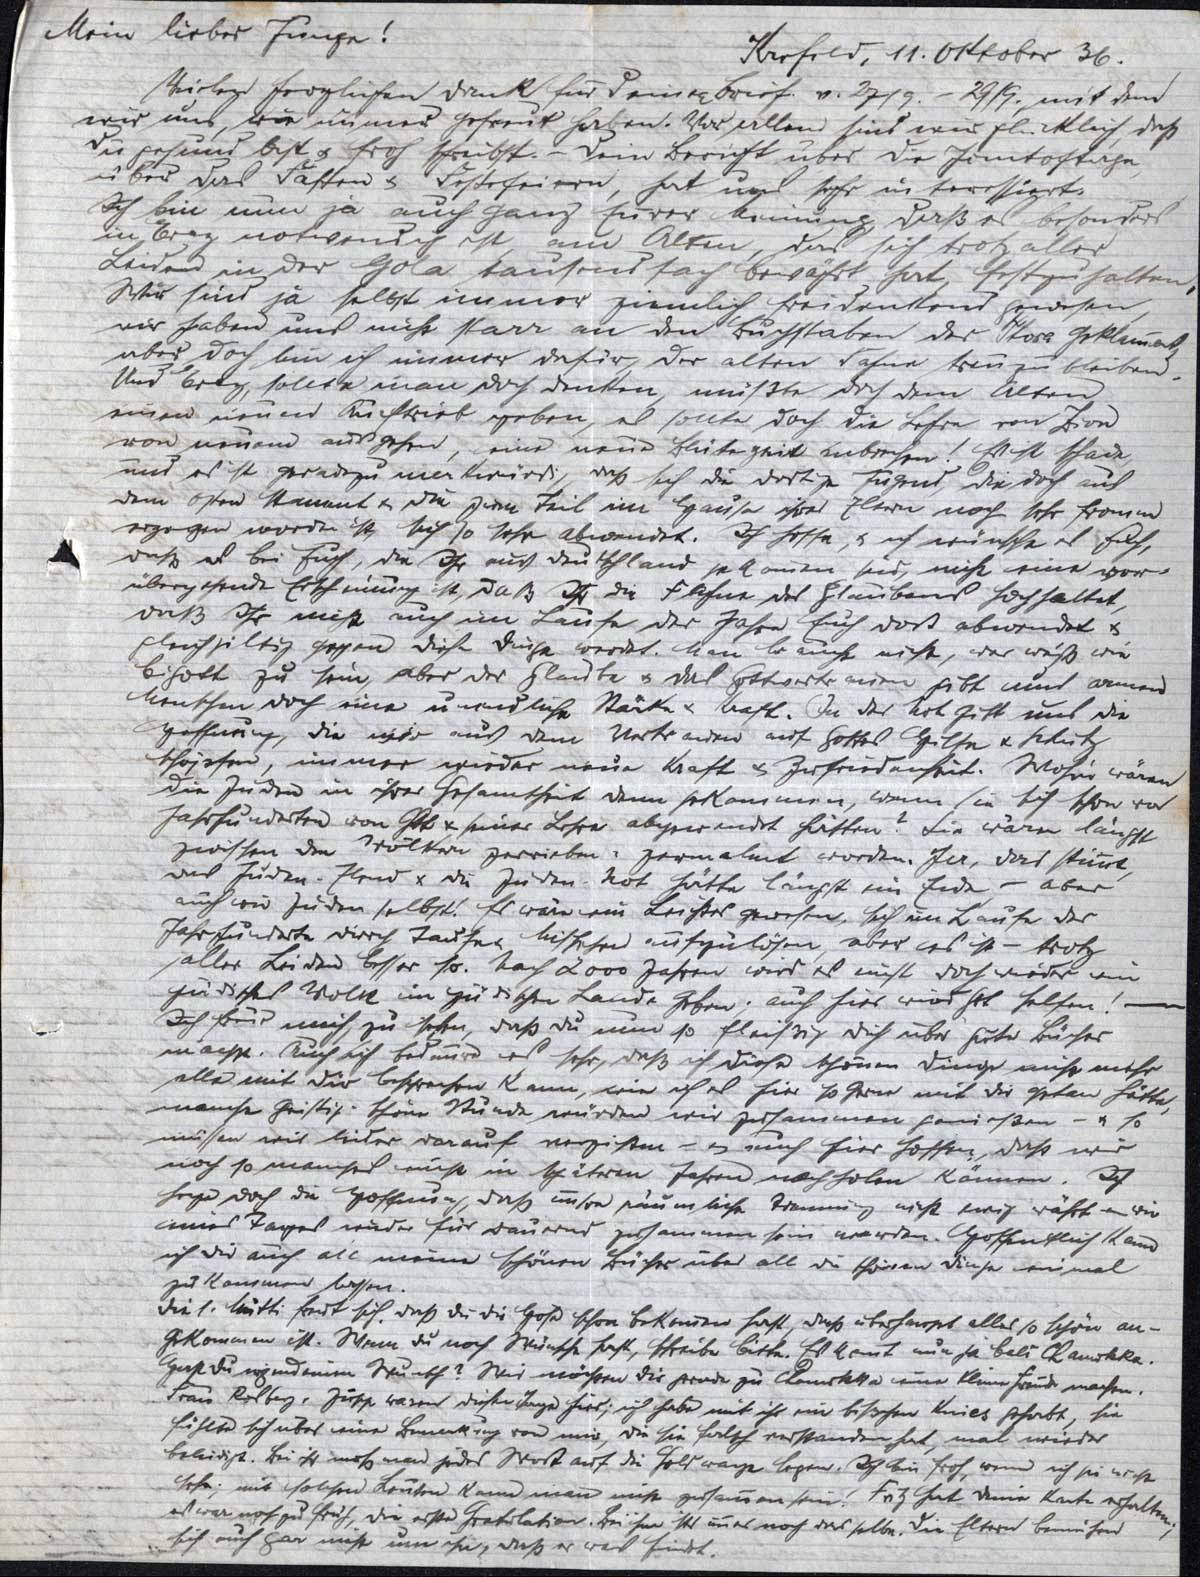 Mein lieber Junge!
Krefeld, 11. Oktober 36.
Vielen herzlichen Dank für Deinen Brief v. 27/9. – 29/9. mit dem
wir uns, wie immer gefreut haben. Vor allem sind wir glücklich, daß
Du gesund bist & froh schreibst. – Dein Bericht über die Jomtoftage,
über das Fasten & Festefeiern, hat uns sehr interessiert.
Ich bin nun ja auch ganz Eurer Meinung, daß es besonders
in Erez notwendig ist, am Alten, das sich trotz aller
Leiden in der Gola tausendfach bewährt hat, festzuhalten.
Wir sind ja selbst immer ziemlich freidenkend gewesen,
wir haben uns nicht starr an den Buchstaben der Thora geklammert,
aber doch bin ich immer dafür, der alten Fahne treu zu bleiben.
Und Erez, sollte man doch denken, müßte doch dem Alten
einen neuen Auftrieb geben, es sollte doch die Lehre von Zion
von neuem ausgehen, eine neue Blütezeit anbrechen! Es ist schade
und es ist geradezu merkwürdig, daß sich die dortige Jugend, die doch aus
dem Osten stammt & die zum Teil im Hause ihrer Eltern noch sehr fromm
erzogen worden ist, sich so sehr abwendet. Ich hoffe, & ich wünsche es Euch,
daß es bei Euch, die Ihr aus Deutschland gekommen seid, nicht eine vor-
übergehende Erscheinung ist, daß Ihr die Fahne des Glaubens hochhaltet,
daß Ihr nicht auch im Laufe der Jahre Euch dort abwendet &
gleichgiltig gegen diese Dinge werdet. Man braucht nicht, wer weiß wie
bigott zu sein, aber der Glaube & das Gottvertrauen gibt uns armen
Menschen doch eine unendliche Stärke & Kraft. In der Not gibt uns die
Hoffnung, die wir aus dem Vertrauen auf Gottes Hilfe & Schutz
schöpfen, immer wieder neue Kraft & Zufriedenheit. Wohin wären
die Juden in ihrer Gesamtheit denn gekommen, wenn sie sich schon vor
Jahrhunderten von Gott & seiner Lehre abgewendet hätten? Sie wären längst
zwischen den Völkern zerrieben & zermalmt worden. Ja, das stimmt,
das Juden-Elend & die Juden-Not hätte längst ein Ende, – aber
auch wir Juden selbst! Es wäre ein Leichtes gewesen, sich im Laufe der
Jahrhunderte durch Taufe & Mischehen aufzulösen, aber es ist – trotz
aller Leiden besser so. Nach 2000 Jahren wird es einst doch wieder ein
jüdisches Volk im jüdischen Lande geben; auch hier wird Gott helfen! —
Ich freue mich zu sehen, daß Du nun so fleißig Dich über gute Bücher
machst. Auch ich bedaure es sehr, daß ich diese schönen Dinge nicht mehr
alle mit Dir besprechen kann, wie ich es hier so gerne mit Dir getan hätte,
manche geistig-schöne Stunde würden wir zusammen genießen – & so
müssen wir leider darauf verzichten – & auch hier hoffen, daß wir
noch so manches einst in späteren Jahren nachholen können. Ich
hege doch die Hoffnung, daß unsre räumliche Trennung nicht ewig währt & wir
eines Tages wieder für dauernd zusammen sein werden. Hoffentlich kann
ich Dir auch all meine schönen Bücher über all die schönen Dinge einmal
zukommen lassen.
Die l. Mutti freut sich, daß Du die Hose schon bekommen hast, daß überhaupt alles so schön an-
gekommen ist. Wenn Du noch Wünsche hast, schreibe bitte. Es kommt nun ja bald Chanukka.
Hast Du irgendeinen Wunsch? Wir möchten Dir gerade zu Chanukka eine kleine Freude machen.
Frau waren diese Tage hier; ich habe mit ihr ein bißchen Knies gehabt, sie
fühlte sich über eine Bemerkung von mir, die sie falsch verstanden hat, mal wieder
beleidigt. Bei ihr muß man jedes Wort auf die Goldwaage legen. Ich bin froh, wenn ich sie nicht
sehe; mit solchen Leuten kann man nicht zusammen sein! Fritz hat Deine Karte erhalten;
es war noch zu früh, die erste Gratulation. Bei ihm ist immer noch dasselbe. Die Eltern bemühen
sich auch gar nicht um ihn, daß er was findet.